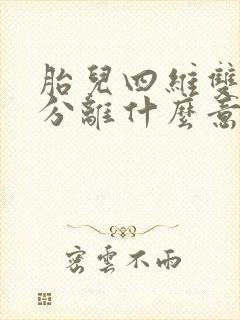 胎兒四維雙
分離什麼意
密雲不雨